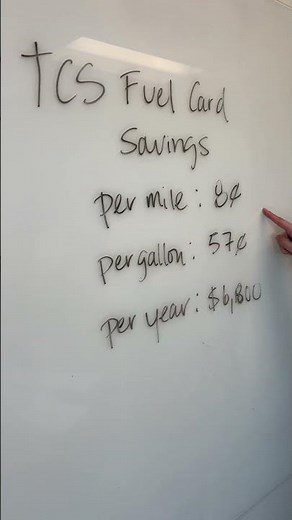 TCS Fuel Card
Savings
per mile: 8¢
per gallon: 57¢
per year: $6,800